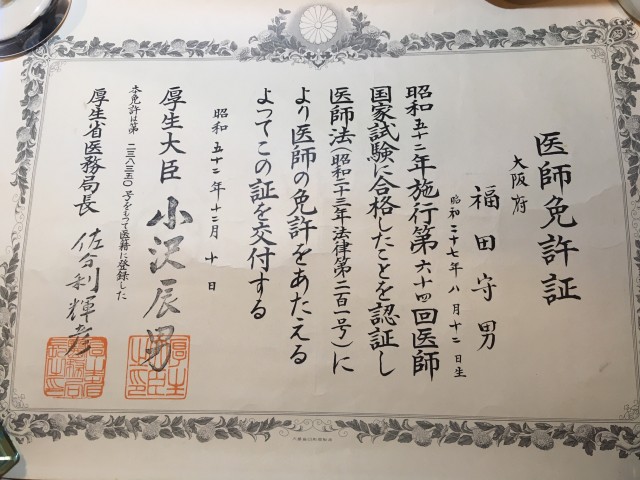 医師免許証
大阪府
福田守男
昭和二十七年八月十二日生
昭和五十二年施行第六十四回医師
国家試験に合格したことを認証し
医師法(昭和二十三年法律第二百一号)に
より医師の免許をあたえる
よつてこの証を交付する
昭和五十二年十二月十日
厚生大臣 小沢辰男
本免許は第二三八三五〇号をもつて医籍に登録した
厚生省医務局長 佐分利輝彦